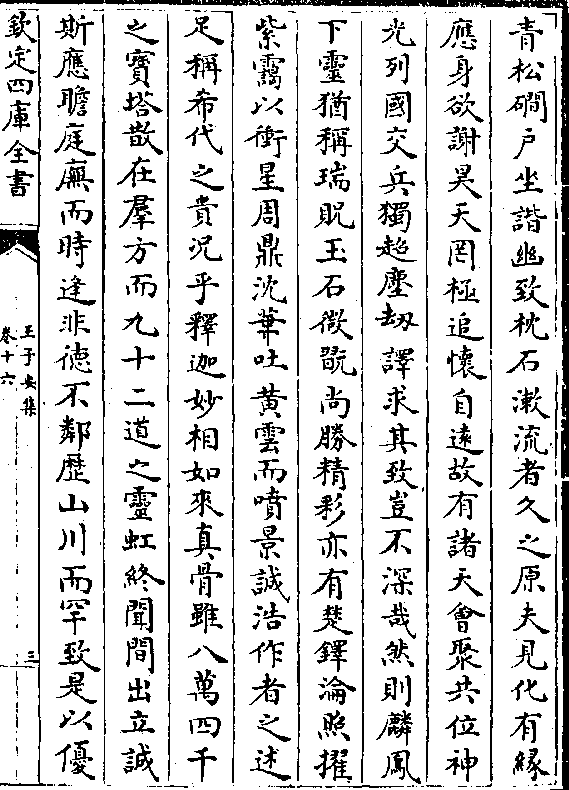 青松磵戶坐諧幽致枕石漱流者久之原夫見化有緣
應身欲謝昊天罔極追懷自遠故有諸天會聚共位神
光列國交兵獨超塵劫譯求其致豈不深哉然則麟鳳
下靈猶稱瑞貺玉石微翫尚勝精彩亦有楚鐸淪照擢
紫靄以衝星周鼎沈華吐黃雲而噴景誠浩作者之述
足稱希代之貴況乎釋迦妙相如來真骨雖八萬四千
之寶塔散在羣方而九十二道之靈虹終聞間出立誠
斯應瞻庭廡而時逢非德不鄰歷山川而罕致是以優
欽定四庫全書
王子安集
卷十六
三